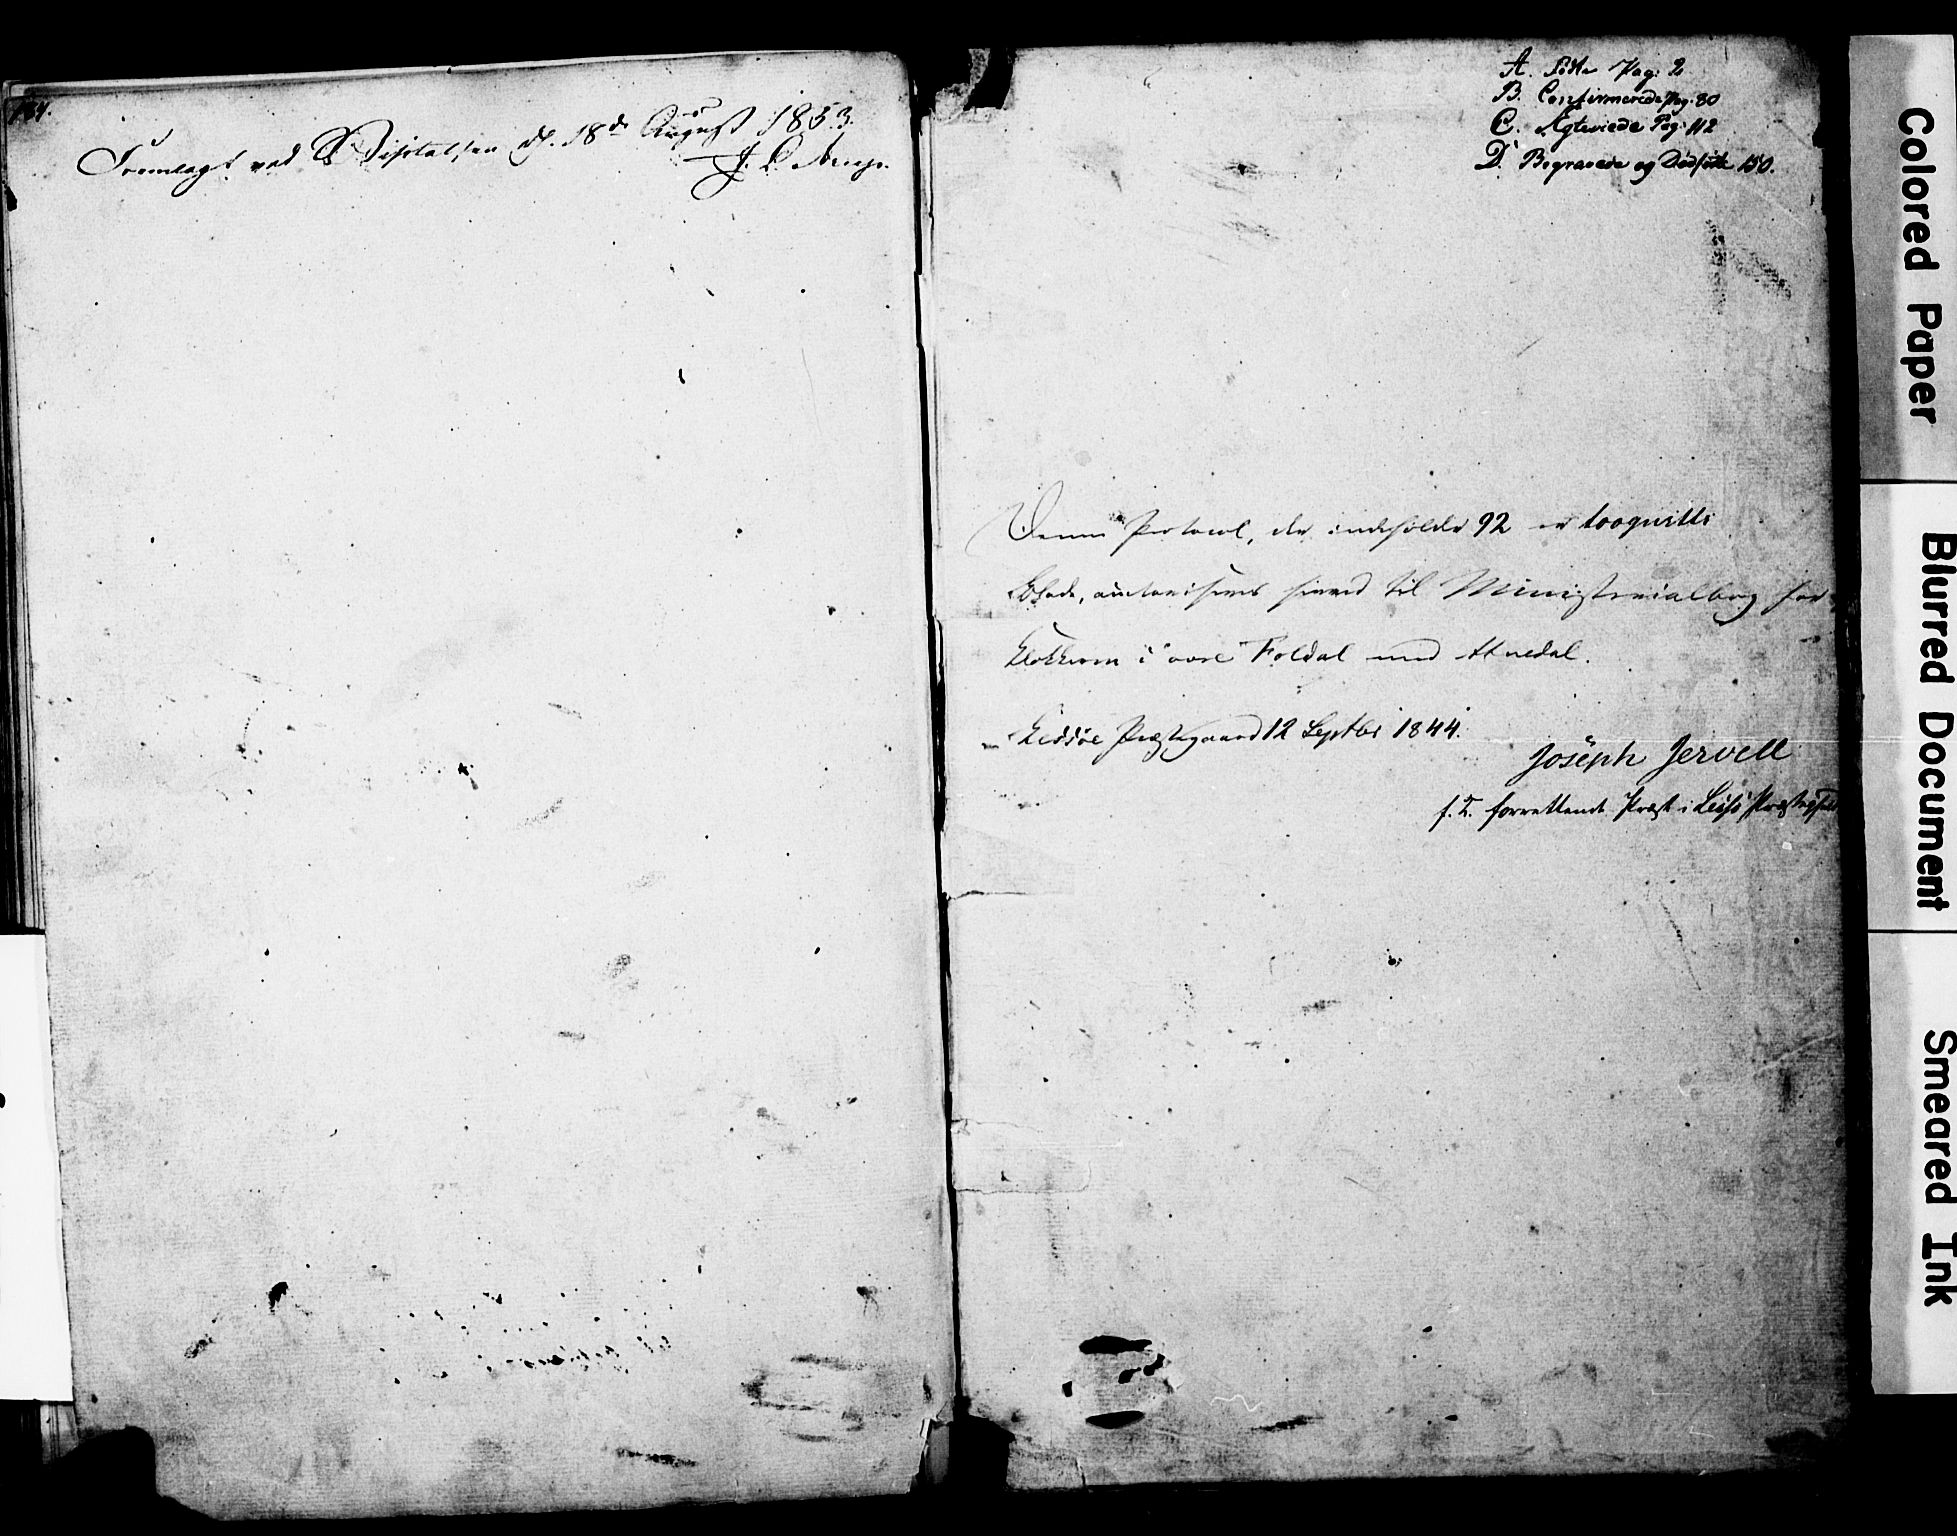 184.
Fremlagt ved Visitatsen d. 18de August 1853.
A. Födte Pag: 2
B. Confirmerede Pag. 80
C. Ægteviede Pag: 112
D. Begravede og Dødfødte 150.
Denne Protocol, der indeholder 92 er toognitti
Blade, autoriseres herved til Ministerialbog for
Klokkeren i øvre Foldal med Atnedal.
Præstegaard 12 Septbr 1844.
Joseph Jervell
f. T. forrettende Præst i Præstegjeld
Colored Paper
Blurred Document
Smeared Ink